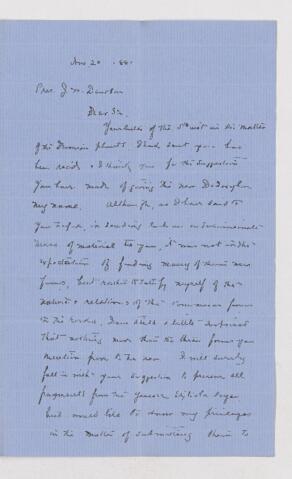 Nov 20 .88.
Prin. J. W. Dawson
Dear Sir
Your letter of the 5th inst in the matter
of the Devonian plants I had sent you has
been recd. & I thank you for the suggestion
you have made of giving the new Dadoxylon
my name. Although, as I have said to
you before, in sending such an
mass of material to you, it was not in the
expectation of finding many of them new
forms, but rather to satisfy myself of the
nature & relations of the common forms
in the rocks, I am still a little surprised
that nothing more than the three forms you
mention prove to be new. I will surely
fall in with your suggestion to preserve all
fragments from the Genesee
but would like to draw my privileges
in the matter of submitting them to